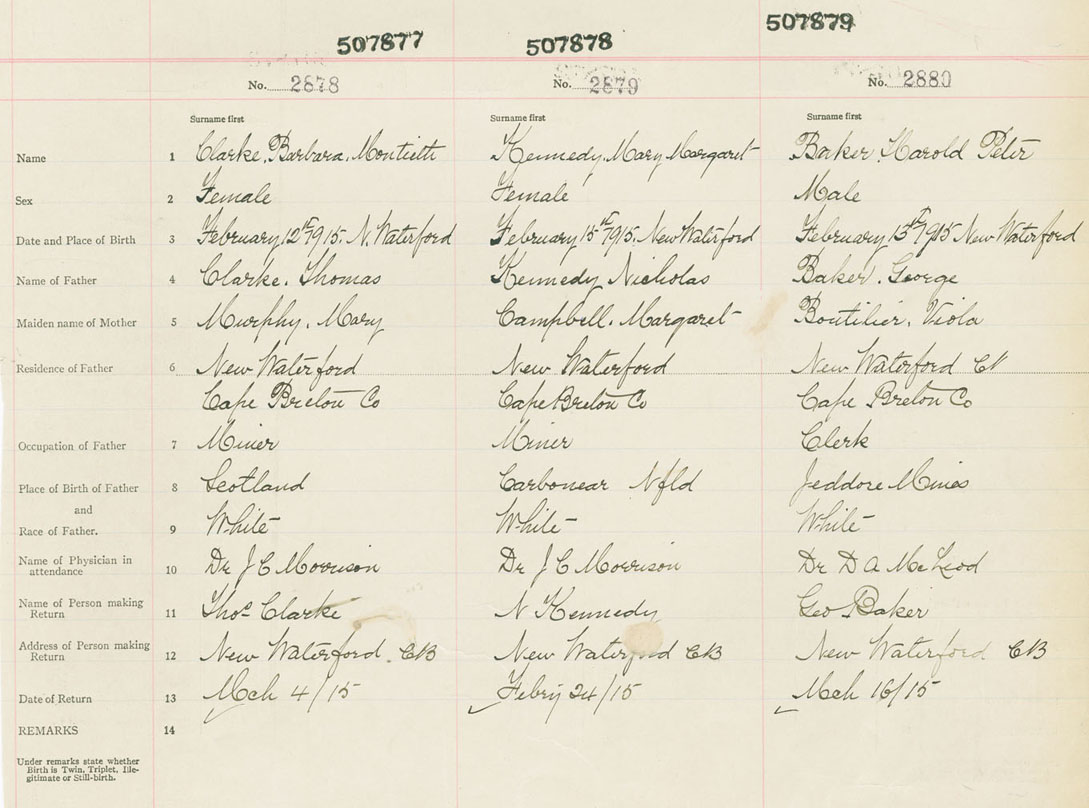 507877 507878 507879
No. 2878 No. 2879 No. 2880
Surname first Surname first Surname first
Name 1 Clarke, Barbara, Montieth Kennedy, Mary Margaret Baker, Harold Peter
Sex 2 Female Female Male
Date and Place of Birth 3 February 12th 1915. N. Waterford February 15th 1915. New Waterford February 15th 1915 New Waterford
Name of Father 4 Clarke, Thomas Kennedy, Nicholas Baker, George
Maiden name of Mother 5 Murphy, Mary Campbell, Margaret Boutilier, Viola
Residence of Father 6 New Waterford New Waterford New Waterford CB
Cape Breton Co Cape Breton Co Cape Breton Co
Occupation of Father 7 Miner Miner Clerk
Place of Birth of Father 8 Scotland Carbonear Nfld Jeddore Mines
and
Race of Father. 9 White White White
Name of Physician in
attendance 10 Dr J C Morrison Dr J C Morrison Dr D A McLeod
Name of Person making
Return 11 Thos Clarke N Kennedy Geo Baker
Address of Person making
Return 12 New Waterford. CB New Waterford CB New Waterford CB
Date of Return 13 Mch 4/15 Febry 24/15 Mch 16/15
REMARKS 14
Under remarks state whether
Birth is Twin, Triplet, Ille-
gitimate or Still-birth.